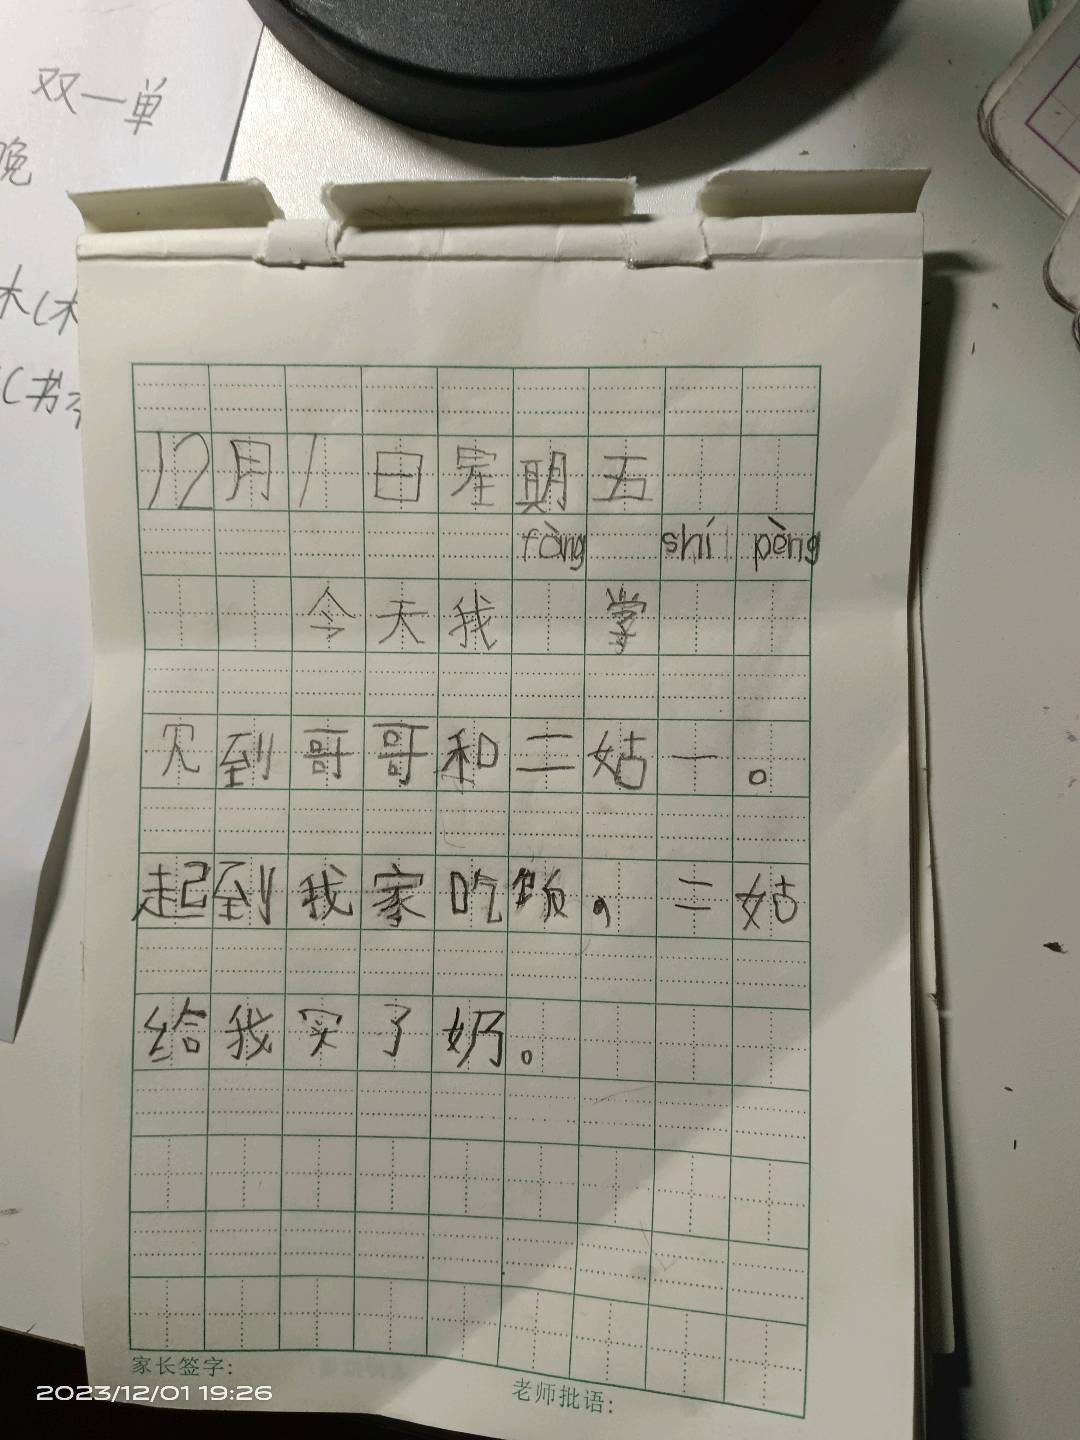 双一单
晚
木(木
(书本
12月1日星期五
fàng shí pèng
今天我 学
见到哥哥和二姑一。
起到我家吃饭，二姑
给我买了奶。
家长签字:
老师批语:
2023/12/01 19:26